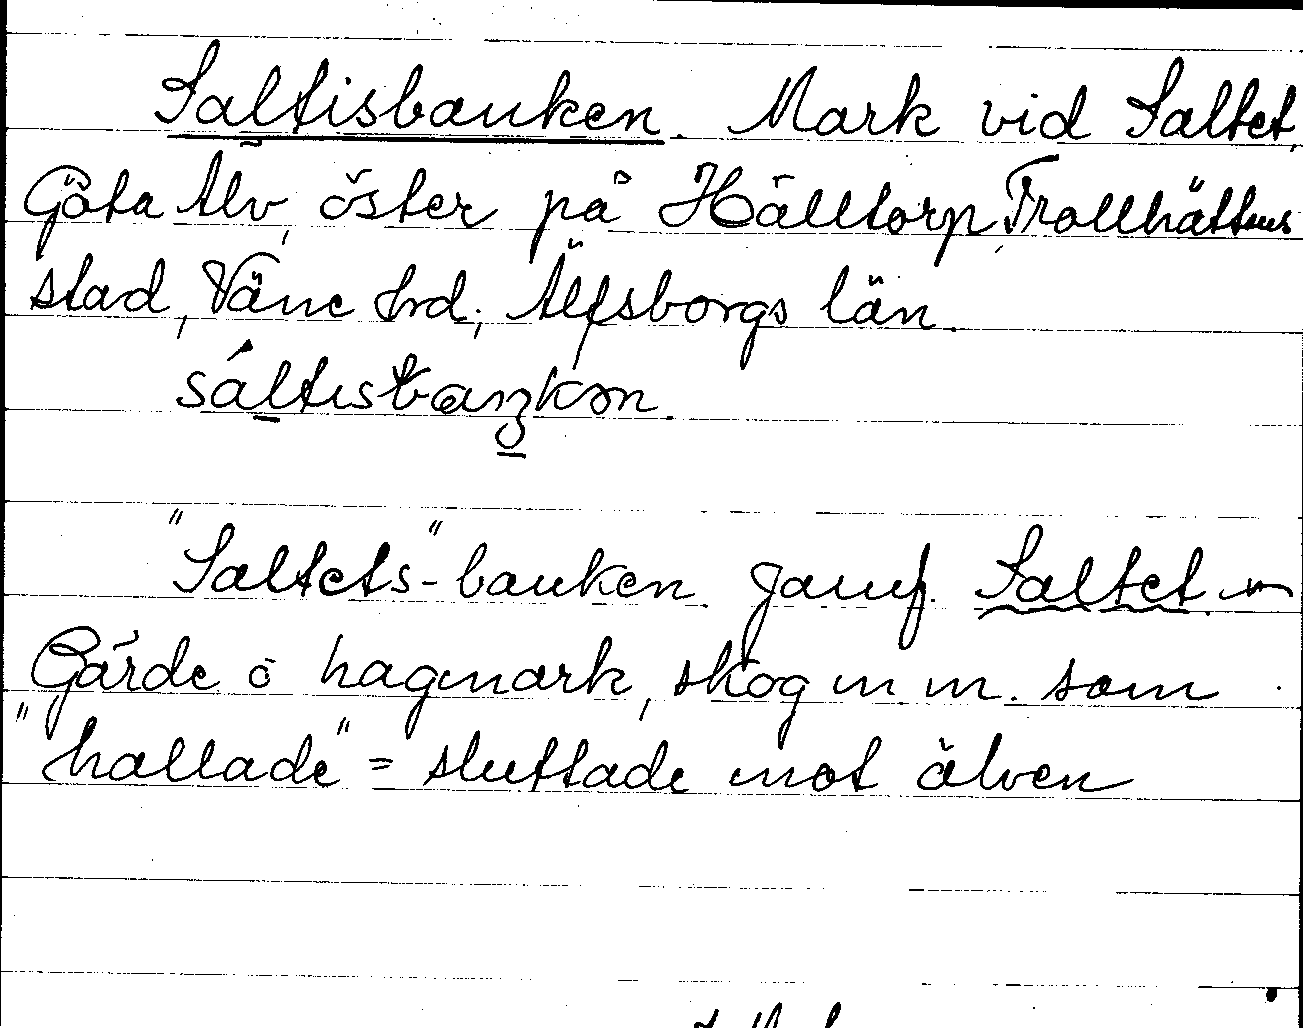 Saltisbanken. Mark vid Saltet,
Göta Älv, öster på Hälltorp, Trollhättans
stad, Väne hrd; Älfsborgs län.
"Saltets"-banken. Jämf. Saltet. –
Gärde o hagmark, skog m m. som
"hallade" = sluttade mot älven